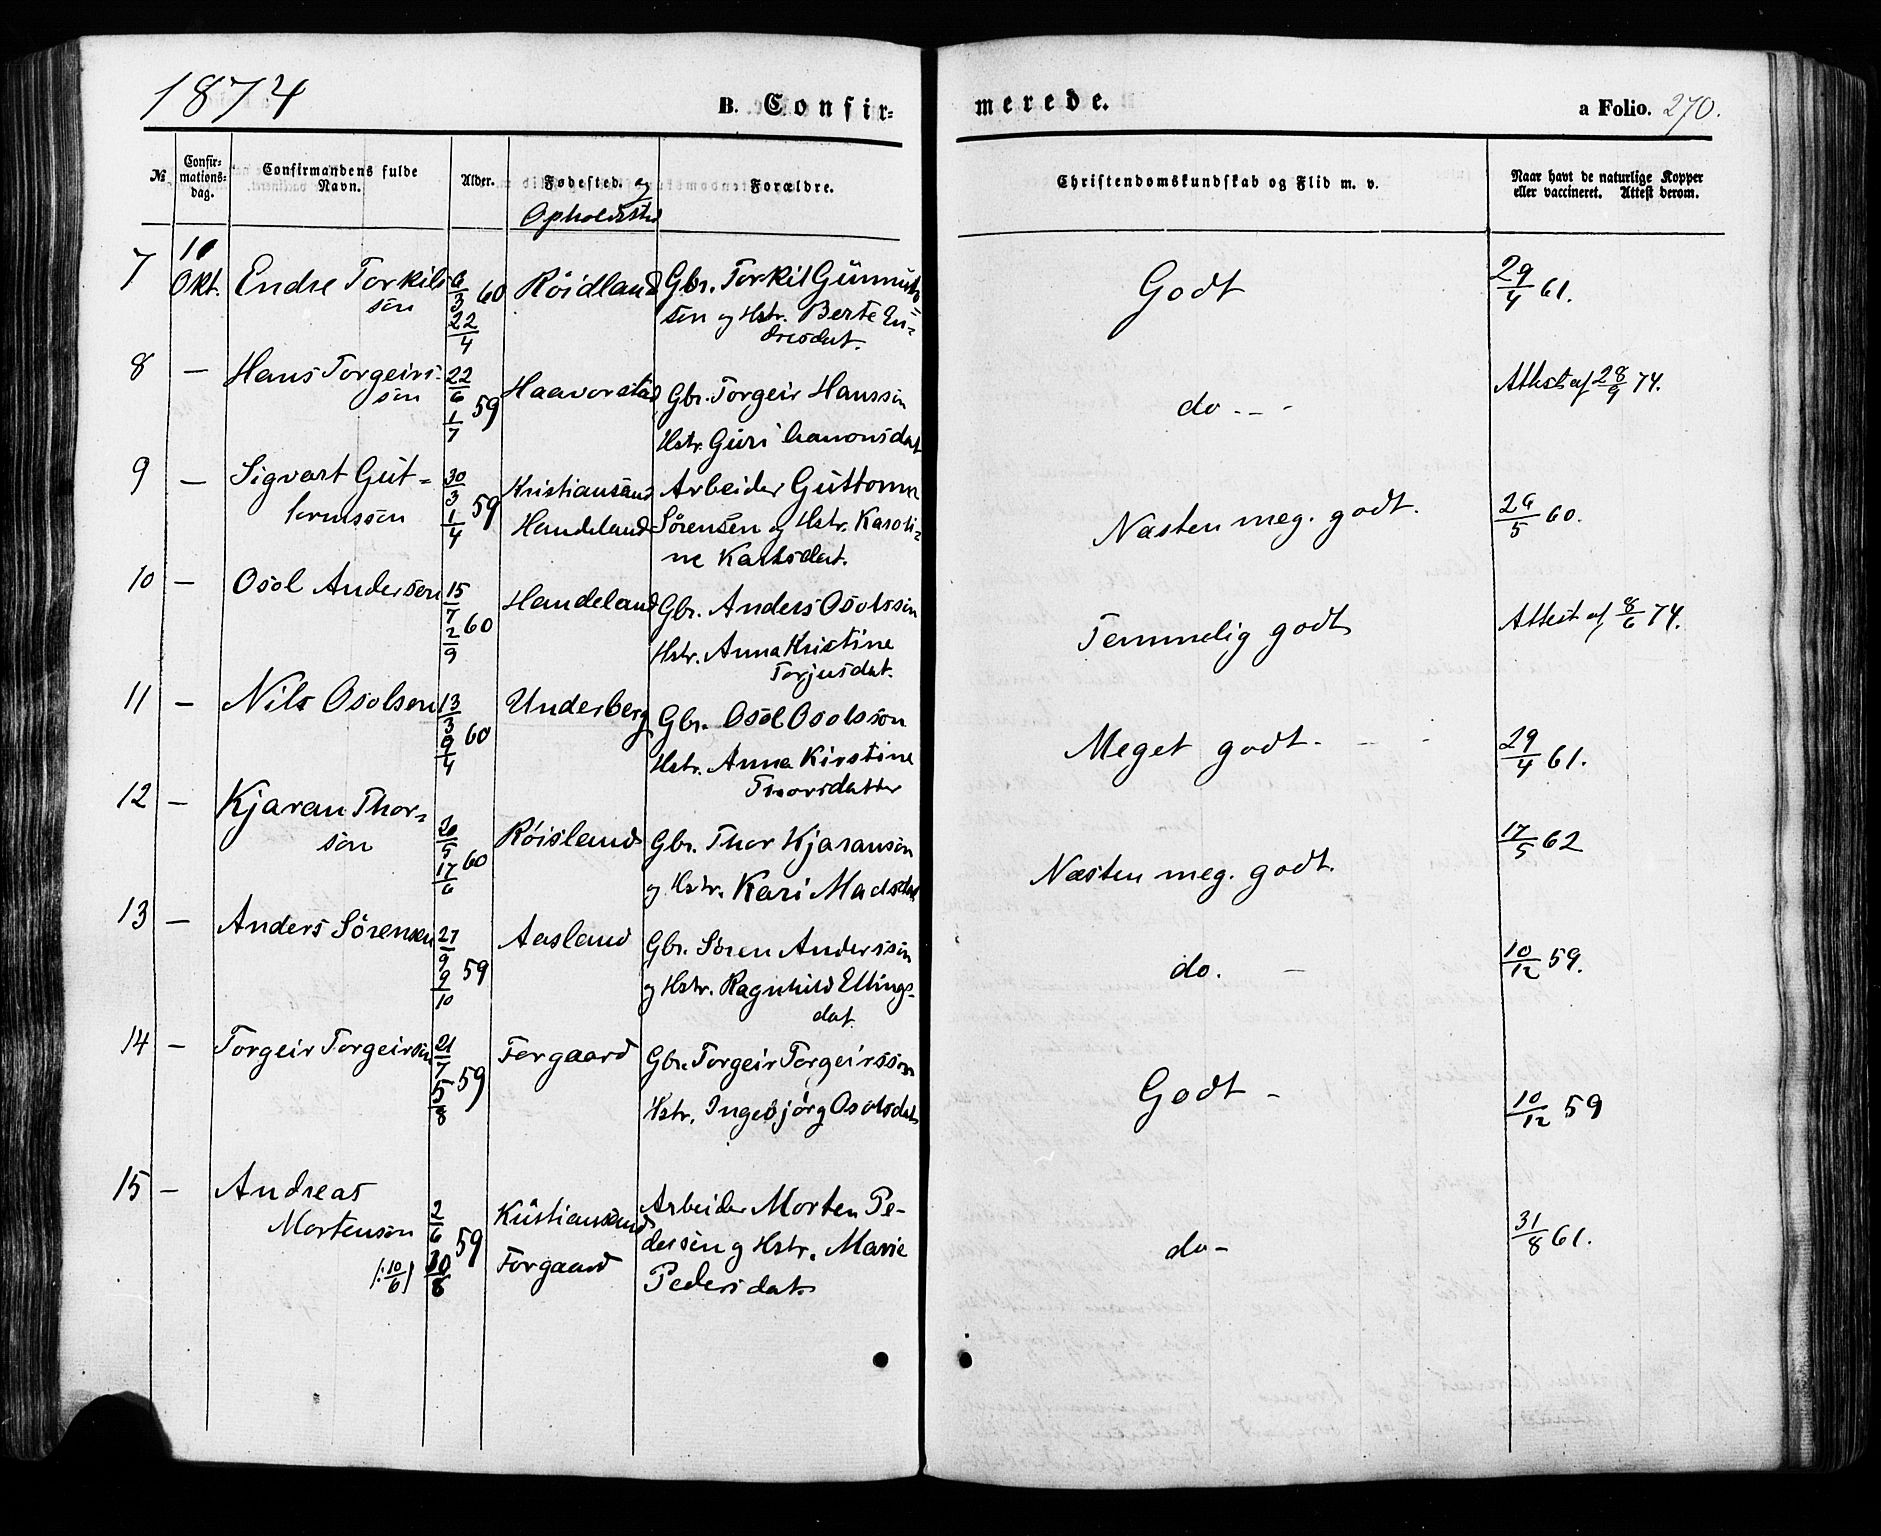 1874
B. Confir=
merede.
a Folio. 270.
№
Confir=
mations=
dag.
Confirmandens fulde
Navn.
Alder.
Fødested. og
Opholdssted
Forældre.
Christendomskundskab og Flid m. v.
Naar havt de naturlige Kopper
eller vaccineret. Attest derom.
7 10 Okt. Endre Torkils
sön
6/3 60 22/4
Röidland
Gbr. Torkil Gunnuls
sön og Hstr. Berte En=
dresdat.
Godt
29/4 61.
8 — Hans Torgeirs-
sön
22/6 59 1/7
Haavorstad
Gbr. Torgeir Hanssön
Hstr. Guri Aanonsdat
do. - -
Attest af 28/9 74.
9 — Sigvart Gut=
tormsön
30/3 59 1/4
Kristiansand
Handeland
Arbeider Guttorm
Sörensen og Hstr. Karoli=
ne Karlsdat.
Næsten meg. godt.
26/5 60.
10 — Osol Andersen
15/7 60 2/9
Handeland
Gbr. Anders Osolssön
Hstr. Anna Kristine
Torjusdat.
Temmelig godt
Attest af 8/6 74.
11 — Nils Osolsen
13/3 60 9/4
Underberg
Gbr. Osol Osolssön
Hstr. Anna Kirstine
Thorsdatter
Meget godt. - -
29/4 61.
12 — Kjaran Thor=
sön
30/5 60 17/6
Röisland
Gbr. Thor Kjaransön
og Hstr. Kari Madsdat
Næsten meg. godt.
17/5 62
13 — Anders Sörensen
27/9 59 9/10
Aasland
Gbr. Sören Anderssön
og Hstr. Ragnhild Ellings-
dat.
do. —
10/12 59.
14 — Torgeir Torgeirsön
21/7 59 5/8
Forgaard
Gbr. Torgeir Torgeirssön
Hstr. Ingebjörg Osolsdat
Godt -
10/12 59
15 — Andreas
Mortensön
/: 10/6 /
2/6 59 30/8
Kristiansand
Forgaard
Arbeider Morten Pe-
dersön og Hstr. Marie
Pedersdat.
do -
31/8 61.